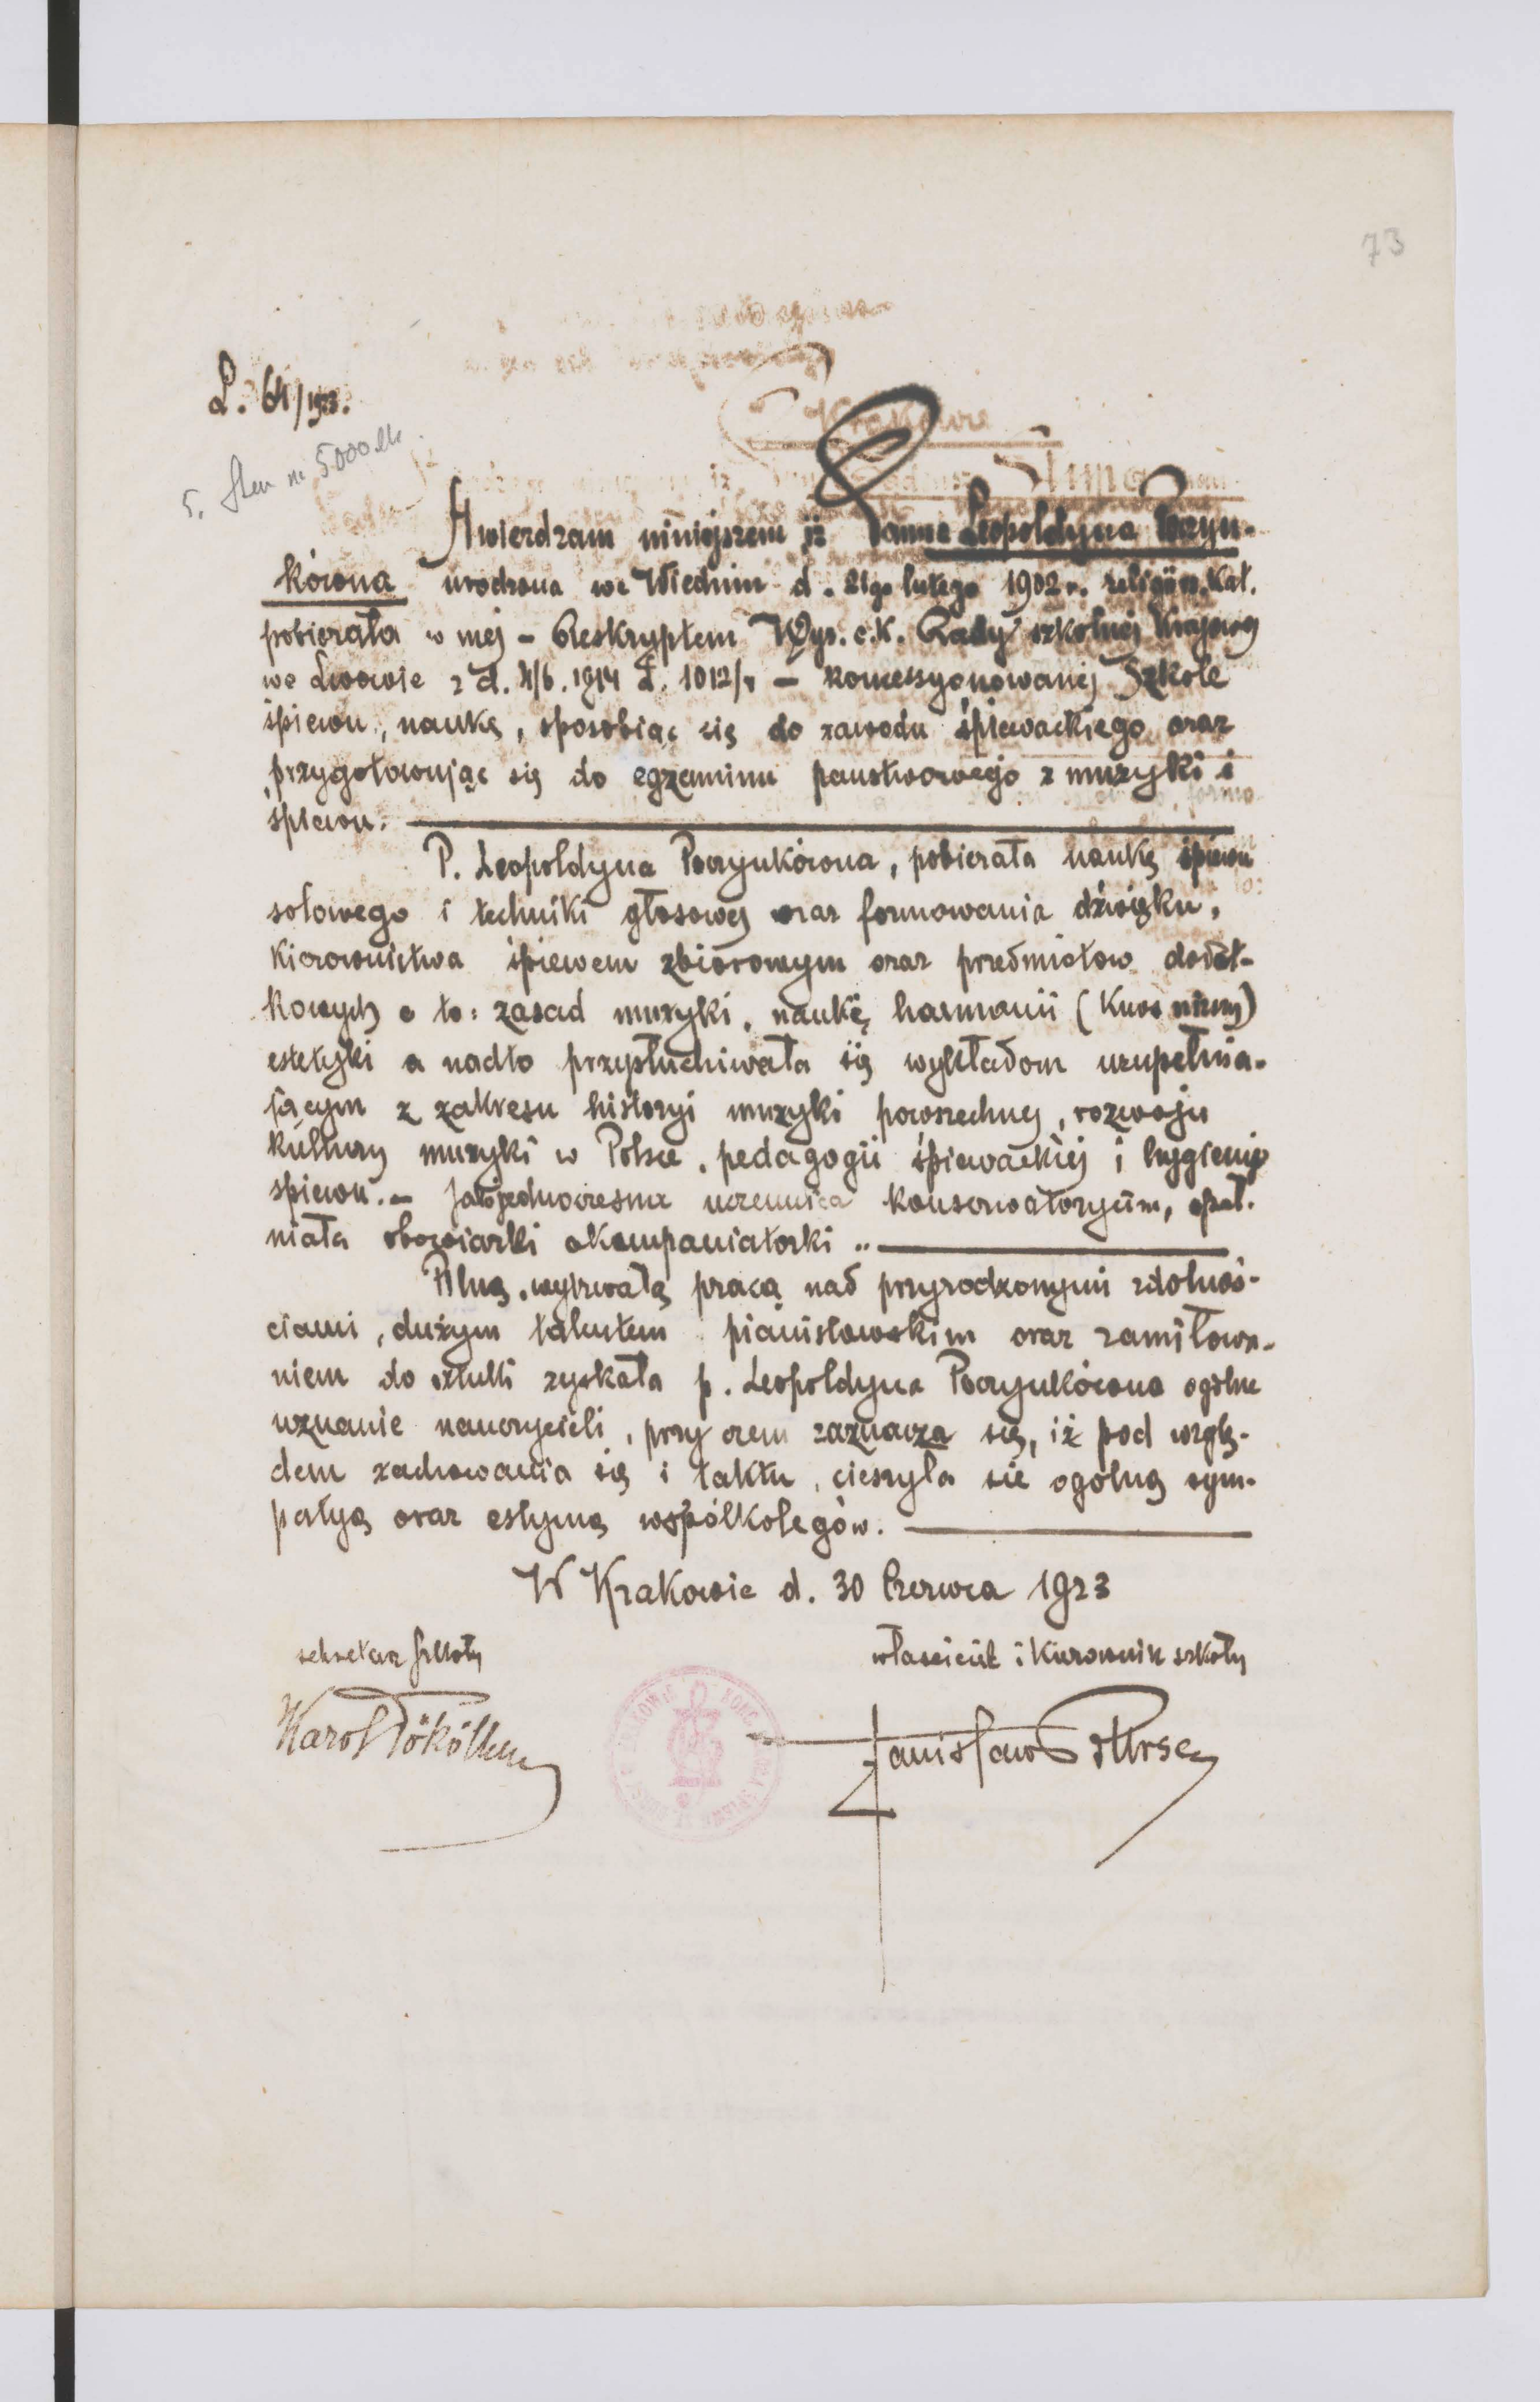 73
L. 61/1923.
Stwierdzam niniejszem iż Panna Leopoldyna Poczyn-
kówna urodzona we Wiedniu d. 21go lutego 1902 r. religii rz. Kat.
pobierała w mej – Reskryptem Wys. c. K. Rady szkolnej Krajowej
we Lwowie z d. 4/6. 1914 L. 1012/4 – koncessyonowanej Szkole
śpiewu, naukę, sposobiąc się do zawodu śpiewackiego oraz
przygotowując się do egzaminu państwowego z muzyki i
śpiewu.
P. Leopoldyna Poczynkówna, pobierała naukę śpiewu
solowego i techniki głosowej oraz formowania dźwięku,
Kierownictwa śpiewem zbiorowym oraz przedmiotow dodat-
kowych a to: zasad muzyki, naukę harmonii (Kurs niższy)
estetyki a nadto przysłuchiwała się wykładom uzupełnia-
jącym z zakresu historyi muzyki powszechnej, rozwoju
kultury muzyki w Polsce, pedagogii śpiewackiej i hygienie
spiewu. – Jako jednoczesna uczennica konserwatoryum, speł-
niała obowiązki akompaniatorki ..
Pilną, wytrwałą pracą nad przyrodzonymi zdolnoś-
ciami, dużym talentem pianistowskim oraz zamiłowa-
niem do sztuki zyskała p. Leopoldyna Poczynkówna ogólne
uznanie nauczycieli, przy czem zaznacza się, iż pod wzglę-
dem zachowania się i taktu, cieszyła sie ogólną sym-
patyą oraz estymą współkolegów.
W Krakowie d. 30 Czerwca 1923
sekretarz szkoły
właściciel i Kierownik szkoły
Karol
Stanisław Bursa